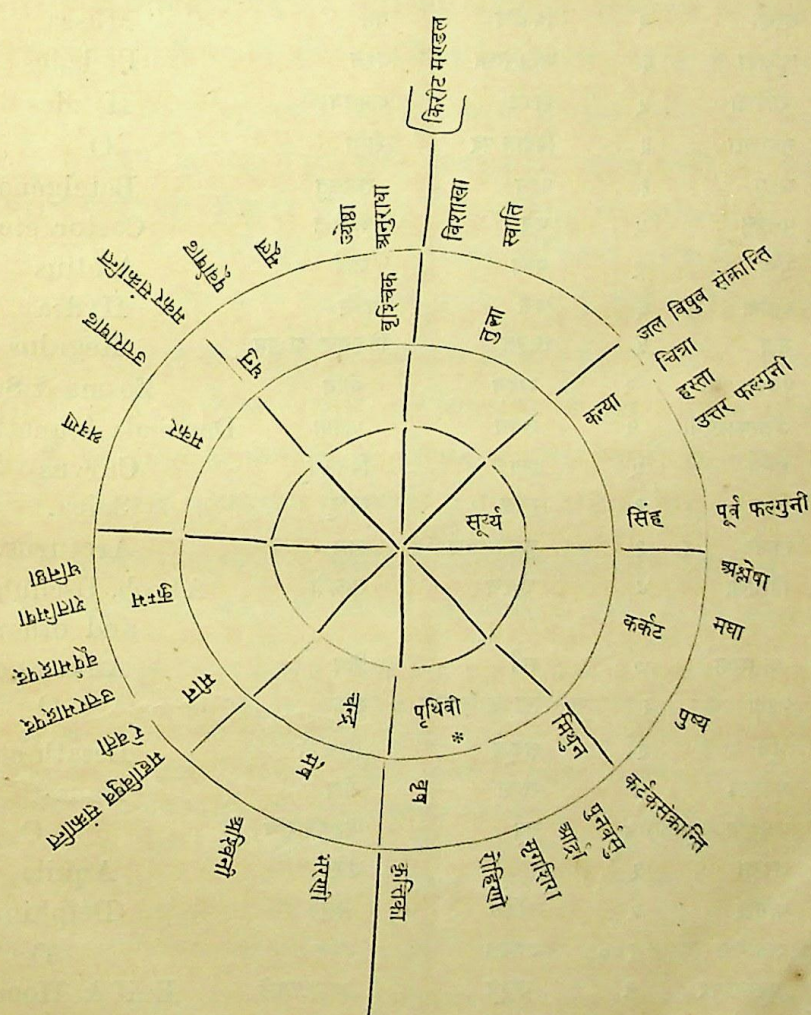 किरीट मण्डल
विशाखा
स्वाति
जल विषुव संक्रान्ति
चित्रा
हस्ता
उत्तर फल्गुनी
पूर्व फल्गुनी
अश्लेषा
मघा
पुष्य
कर्टकसंक्रान्ति
पुनर्वसु
आर्द्रा
मृगशिरा
रोहिणी
कृत्तिका
भरणी
अश्विनी
महाविषुव संक्रान्ति
रेवती
उत्तरभाद्रपद
पूर्वभाद्रपद
शतभिषा
धनिष्ठा
श्रवण
उत्तराषाढ
मकर संक्रान्ति
पूर्वाषाढ
मूल
ज्येष्ठा
अनुराधा
वृश्चिक
तुला
कन्या
सिंह
कर्कट
मिथुन
वृष
मेष
मीन
कुम्भ
मकर
धनु
सूर्य्य
पृथिवी
*
चन्द्र